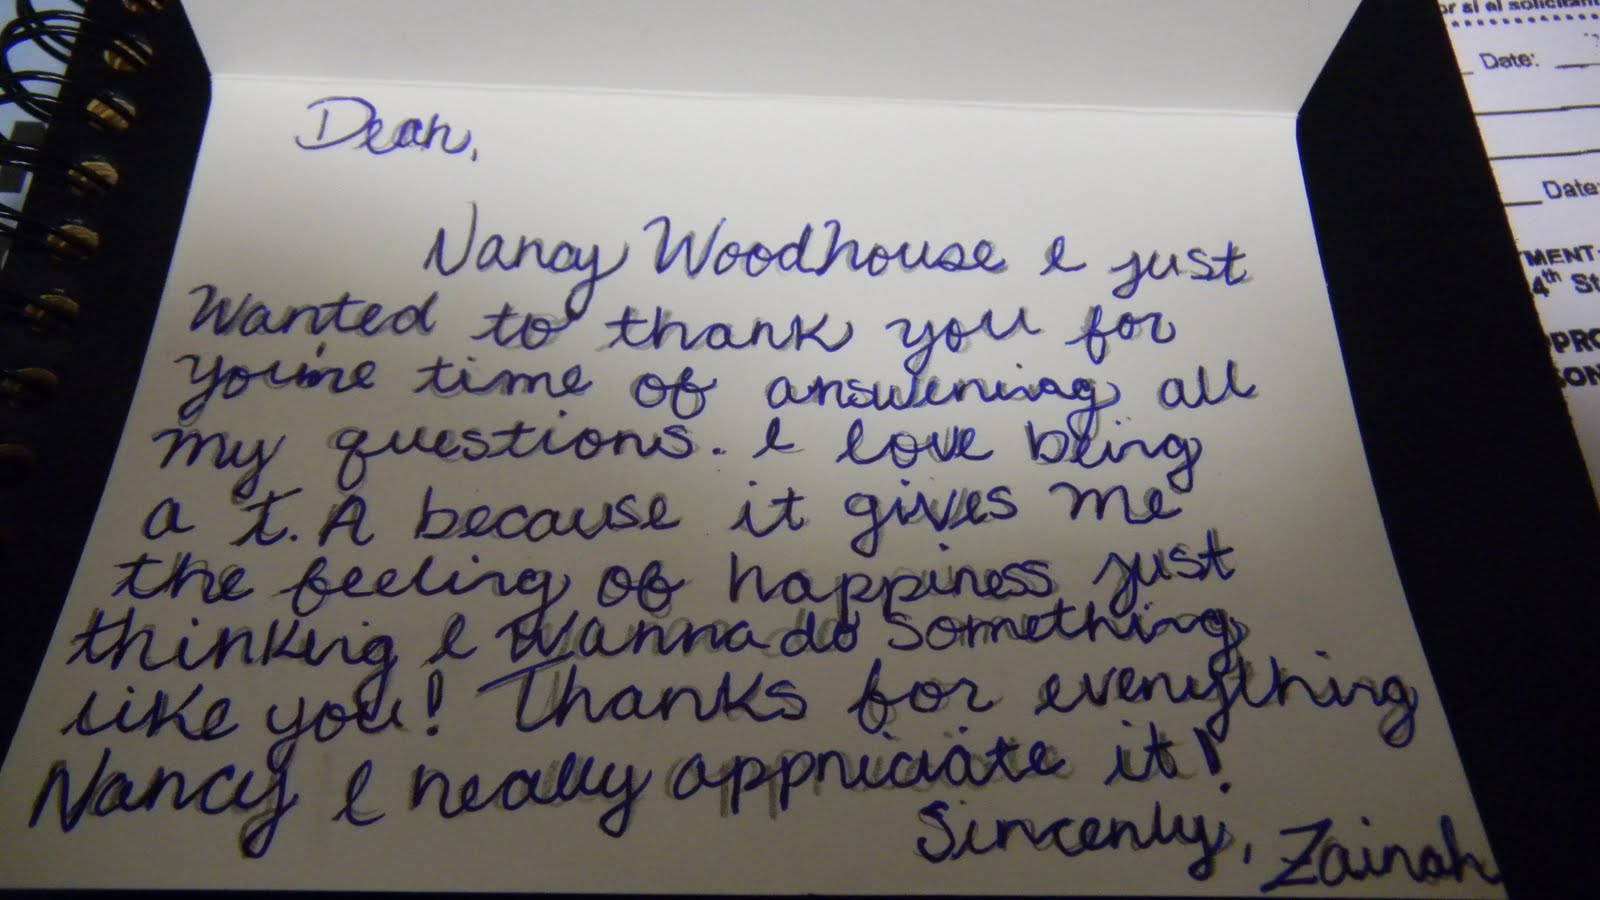 Dear,
Nancy Woodhouse I just
Wanted to thank you for
you're time of answering all
my questions. I love being
a t.A because it gives me
the feeling of happiness just
thinking I wanna do something
like you! Thanks for everything
Nancy I really appriciate it!
Sincerly, Zainah
or si el solicitant
Date:
Date:
MENT
4th St
PRO
SON